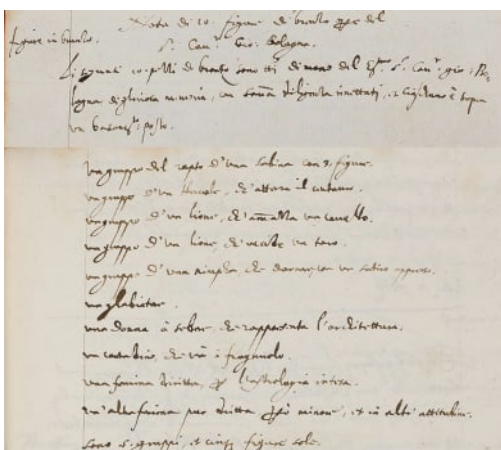 Nota di 10. figure di bronzo
figure in bronzo.
S. Cau.r Gio: Bologna.
Li seguenti 10. pezzi di bronzo sono di mano del S. Cau.r gio: Bo
logna di gloriosa memoria, con diligenza et ogni uno è sopra
un posto.
un gruppo del ratto d'una Sabina con 3. figure.
un gruppo d'un Hercole, ch'attera il centauro.
un gruppo d'un lione, ch'ammazza un cavallo.
un gruppo d'un lione, ch'uccide un toro.
un gruppo d'una nimpha, che dorme, con un satiro appresso.
un glabiatore.
una donna à sedere, che rappresenta l'architettura.
un contadino, che và à frugnuolo.
una femina dritta, per l'astrologia intesa.
un'altra femina pur dritta più minore, et in altra attitudine.
sono 5. gruppi, et cinque figure sole.